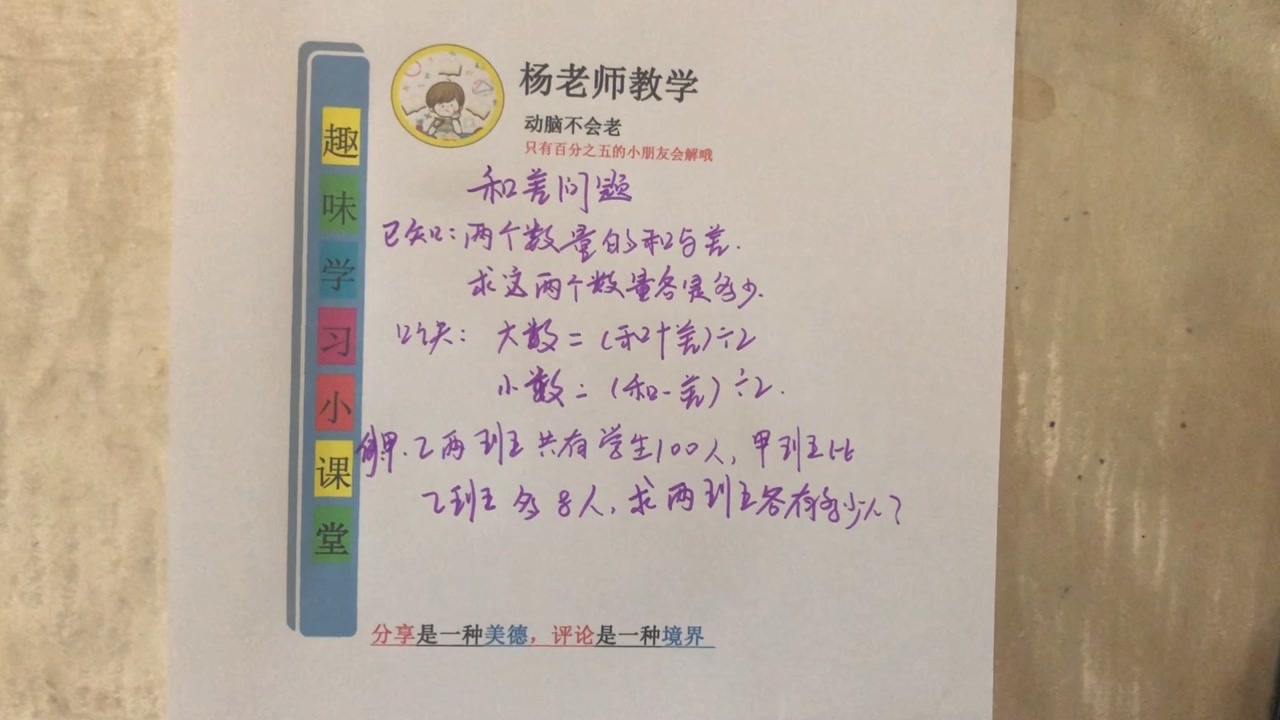 趣味学习小课堂
杨老师教学
动脑不会老
只有百分之五的小朋友会解哦
和差问题
已知：两个数量的和与差.
求这两个数量各是多少.
口决： 大数=(和+差)÷2
小数=(和-差)÷2.
例甲.乙两班共有学生100人,甲班比
乙班多8人,求两班各有多少人?
分享是一种美德，评论是一种境界